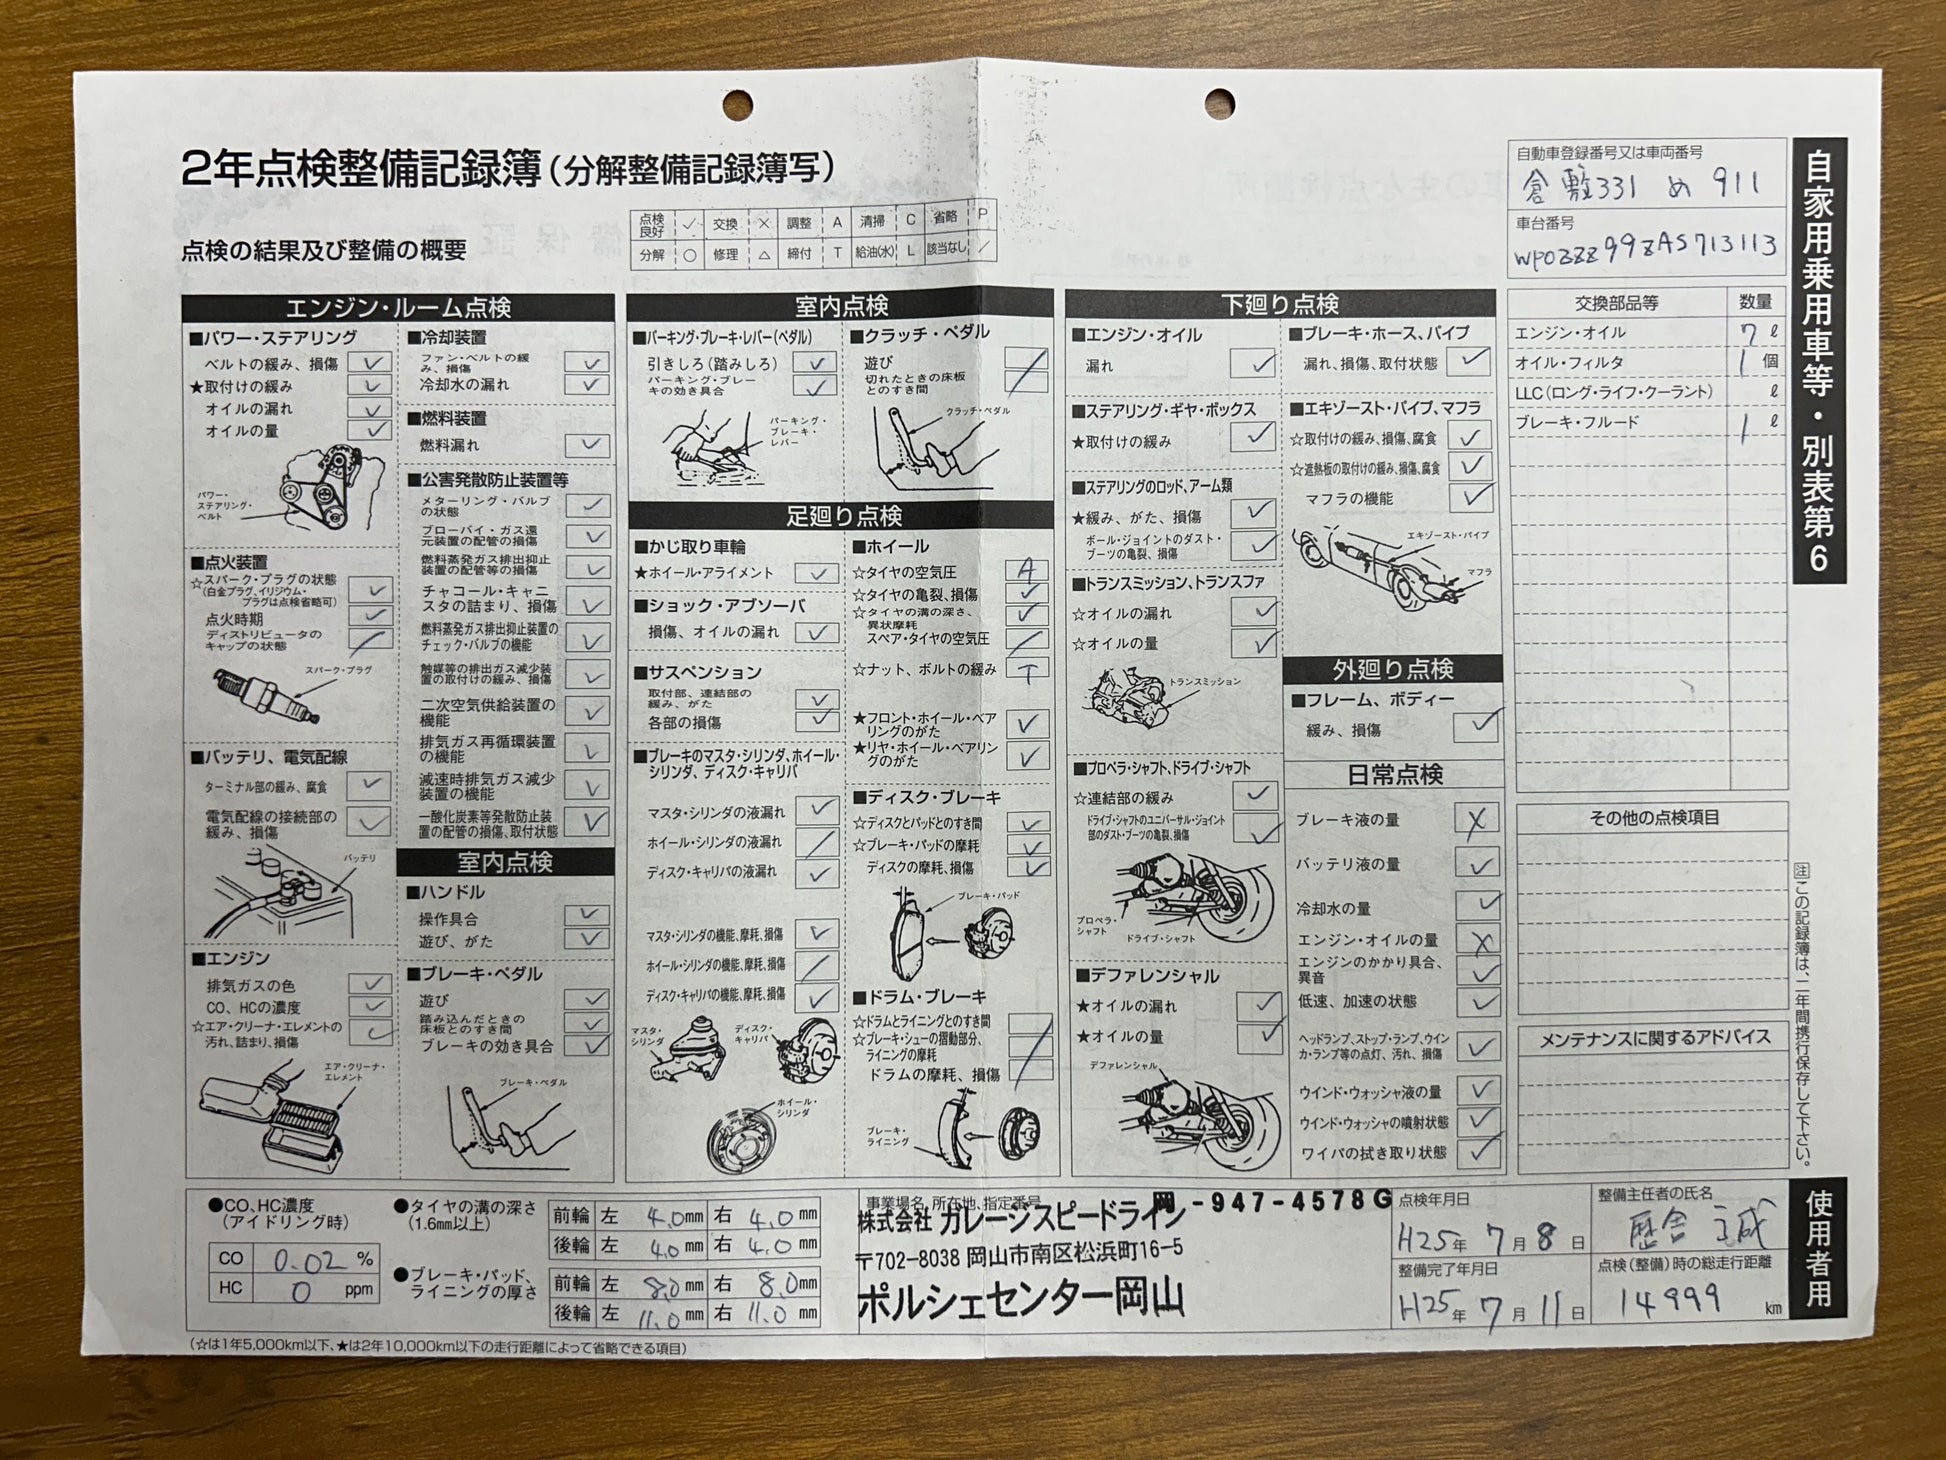 2年点検整備記録簿(分解整備記録簿写)
点検の結果及び整備の概要
点検良好 ✓ 交換 × 調整 A 清掃 C 省略 P
分解 ○ 修理 △ 締付 T 給油(水) L 該当なし /
自動車登録番号又は車両番号
倉敷331 め 911
車台番号
WP0ZZZ99ZAS713113
自家用乗用車等・別表第6
エンジン・ルーム点検
■パワー・ステアリング
ベルトの緩み、損傷 ✓
★取付けの緩み ✓
オイルの漏れ ✓
オイルの量 ✓
パワー・
ステアリング・
ベルト
■点火装置
☆スパーク・プラグの状態 ✓
(白金プラグ、イリジウム・
プラグは点検省略可)
点火時期 ✓
ディストリビュータの
キャップの状態 /
スパーク・プラグ
■バッテリ、電気配線
ターミナル部の緩み、腐食 ✓
電気配線の接続部の
緩み、損傷 ✓
バッテリ
■エンジン
排気ガスの色 ✓
CO、HCの濃度 ✓
☆エア・クリーナ・エレメントの
汚れ、詰まり、損傷
エア・クリーナ・
エレメント
■冷却装置
ファン・ベルトの緩
み、損傷 ✓
冷却水の漏れ ✓
■燃料装置
燃料漏れ ✓
■公害発散防止装置等
メターリング・バルブ
の状態 ✓
ブローバイ・ガス還
元装置の配管の損傷 ✓
燃料蒸発ガス排出抑止
装置の配管等の損傷 ✓
チャコール・キャニ
スタの詰まり、損傷 ✓
燃料蒸発ガス排出抑止装置の
チェック・バルブの機能 ✓
触媒等の排出ガス減少装
置の取付けの緩み、損傷 ✓
二次空気供給装置の
機能 ✓
排気ガス再循環装置
の機能 ✓
減速時排気ガス減少
装置の機能 ✓
一酸化炭素等発散防止装
置の配管の損傷、取付状態 ✓
室内点検
■ハンドル
操作具合 ✓
遊び、がた ✓
■ブレーキ・ペダル
遊び ✓
踏み込んだときの
床板とのすき間 ✓
ブレーキの効き具合 ✓
ブレーキ・ペダル
室内点検
■パーキング・ブレーキ・レバー(ペダル)
引きしろ(踏みしろ) ✓
パーキング・ブレー
キの効き具合 ✓
パーキング・
ブレーキ・
レバー
■クラッチ・ペダル
遊び /
切れたときの床板
とのすき間
クラッチ・ペダル
足廻り点検
■かじ取り車輪
★ホイール・アライメント ✓
■ショック・アブソーバ
損傷、オイルの漏れ ✓
■サスペンション
取付部、連結部の
緩み、がた ✓
各部の損傷 ✓
■ブレーキのマスタ・シリンダ、ホイール・
シリンダ、ディスク・キャリパ
マスタ・シリンダの液漏れ ✓
ホイール・シリンダの液漏れ /
ディスク・キャリパの液漏れ ✓
マスタ・シリンダの機能、摩耗、損傷 ✓
ホイール・シリンダの機能、摩耗、損傷 /
ディスク・キャリパの機能、摩耗、損傷 ✓
マスタ・
シリンダ
ディスク・
キャリパ
ホイール・
シリンダ
■ホイール
☆タイヤの空気圧 A
☆タイヤの亀裂、損傷 ✓
☆タイヤの溝の深さ、
異状摩耗 ✓
スペア・タイヤの空気圧 /
☆ナット、ボルトの緩み T
★フロント・ホイール・ベア
リングのがた ✓
★リヤ・ホイール・ベアリン
グのがた ✓
■ディスク・ブレーキ
☆ディスクとパッドとのすき間 ✓
☆ブレーキ・パッドの摩耗 ✓
ディスクの摩耗、損傷 ✓
ブレーキ・パッド
■ドラム・ブレーキ
☆ドラムとライニングとのすき間
☆ブレーキ・シューの摺動部分、
ライニングの摩耗 /
ドラムの摩耗、損傷
ブレーキ・
ライニング
下廻り点検
■エンジン・オイル
漏れ ✓
■ステアリング・ギヤ・ボックス
★取付けの緩み ✓
■ステアリングのロッド、アーム類
★緩み、がた、損傷 ✓
ボール・ジョイントのダスト・
ブーツの亀裂、損傷 ✓
■トランスミッション、トランスファ
☆オイルの漏れ ✓
☆オイルの量 ✓
トランスミッション
■プロペラ・シャフト、ドライブ・シャフト
☆連結部の緩み ✓
ドライブ・シャフトのユニバーサル・ジョイント
部のダスト・ブーツの亀裂、損傷 ✓
プロペラ・
シャフト
ドライブ・シャフト
■デファレンシャル
★オイルの漏れ ✓
★オイルの量 ✓
デファレンシャル
■ブレーキ・ホース、パイプ
漏れ、損傷、取付状態 ✓
■エキゾースト・パイプ、マフラ
☆取付けの緩み、損傷、腐食 ✓
☆遮熱板の取付けの緩み、損傷、腐食 ✓
マフラの機能 ✓
エキゾースト・パイプ
マフラ
外廻り点検
■フレーム、ボディー
緩み、損傷 ✓
日常点検
ブレーキ液の量 ×
バッテリ液の量 ✓
冷却水の量 ✓
エンジン・オイルの量 ×
エンジンのかかり具合、
異音 ✓
低速、加速の状態 ✓
ヘッドランプ、ストップ・ランプ、ウイン
カ・ランプ等の点灯、汚れ、損傷 ✓
ウインド・ウォッシャ液の量 ✓
ウインド・ウォッシャの噴射状態 ✓
ワイパの拭き取り状態 ✓
交換部品等 数量
エンジン・オイル 7 ℓ
オイル・フィルタ 1 個
LLC(ロング・ライフ・クーラント) ℓ
ブレーキ・フルード 1 ℓ
その他の点検項目
メンテナンスに関するアドバイス
注 この記録簿は、二年間携行保存して下さい。
●CO、HC濃度
(アイドリング時)
CO 0.02 %
HC 0 ppm
●タイヤの溝の深さ
(1.6mm以上)
前輪 左 4.0mm 右 4.0mm
後輪 左 4.0mm 右 4.0mm
●ブレーキ・パッド、
ライニングの厚さ
前輪 左 8.0mm 右 8.0mm
後輪 左 11.0mm 右 11.0mm
事業場名、所在地、指定番号
岡-947-4578G
株式会社 ガレージスピードライン
〒702-8038 岡山市南区松浜町16-5
ポルシェセンター岡山
点検年月日
H25年 7月 8日
整備完了年月日
H25年 7月 11日
整備主任者の氏名
点検(整備)時の総走行距離
14999 km
使用者用
(☆は1年5,000km以下、★は2年10,000km以下の走行距離によって省略できる項目)